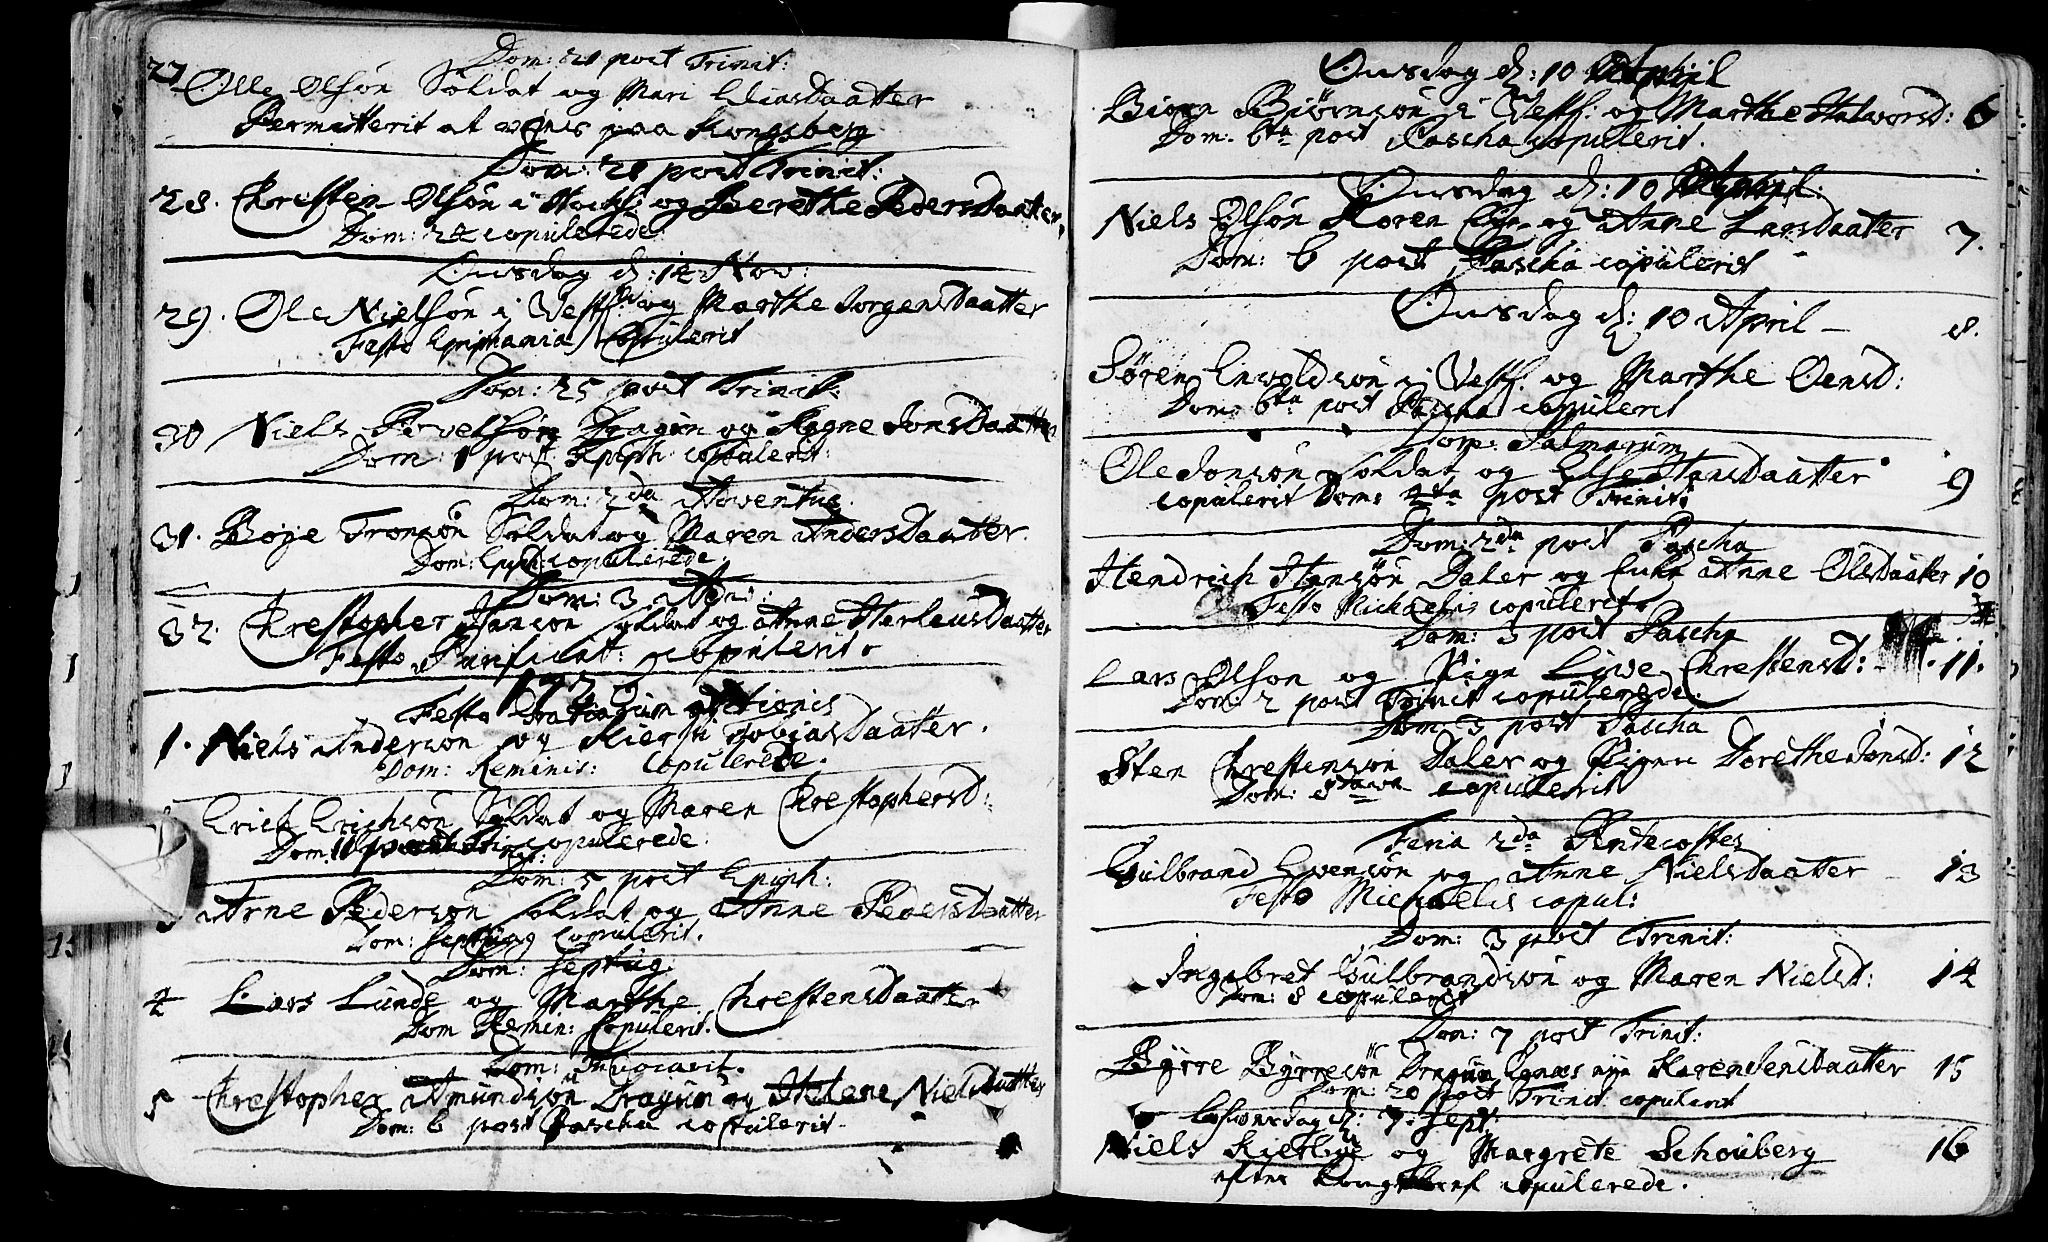 Dom: 21 post Trinit:
27 Olle Olsön Soldat og Mari Eliasdaatter
Permitterit at vies paa Kongsberg
Dom: 21 post Trinit:
28. Chresten Olsön i og Berethe Pedersdaatter.
Dom: 24 copulerede
Onsdag d: 14 Nov:
29. Ole Nielsön i Vestf: og Marthe Jorgensdaatter
Festo Epiphania Copulerit
Dom: 25 post Trinit:
30 Niels Povelsön Dragun og Ragne Jonsdaatter
Dom: 1 post Epiph: copulerit:
Dom: 2da Adventus.
31. Boye Tronsön Soldat og Maren Andersdaatter.
Dom: Epiph: copulerede.
Dom: 3 Adv:
32. Chrestopher Hanson soldat og Anne Herleusdaatter
Festo Purificat: copulerit.
172
Festo
1. Niels Anderson og Kiersti Tobiasdaatter.
Dom: Reminis: Copulerede.
Erich Erichsön Soldat og Maren Chrestophersd:
Dom: copulerede.
Dom: 5 post Epiph:
3 Arne Pedersön soldat og Anne Pedersdaatter
Dom: Septuag Copulerit.
Dom: Septug.
4 Lars Lunde og Marthe Chrestensdaatter
Dom Remin: Copulerit.
Dom: Invocavit.
5 Chrestopher Amundsön Dragun og Helene Nielsdaatter
Dom: 6 post Pascha copulerit.
Onsdag d: 10 April
Biörn Biörnsön i Vestf: og Marthe Halvorsd: 6
Dom: 6ta post Pascha copulerit.
Onsdag d: 10 April.
Niels Olsön og Anne Larsdaatter 7.
Dom: 6 post Pascha copulerit
Onsdag d: 10 April 8.
Sören Envoldsön i Vestf. og Marthe Oensd:
Dom: 6ta post Pascha copulerit
Dom: Palmarum
Ole Jonsön Soldat og Else Hansdaatter 9
copulerit Dom: 4ta post Trinit:
Dom: 2da post Pascha
Hendrich Hansön Daler og Enke Anne Olsdaatter 10
Festo Michaelis copulerit.
Dom: 3 post Pascha
Lars Olson og Pign Live Chrestensd: 11.
Dom: 2 post Trinit copulerede.
Dom: 3 post Pascha
Sten Chrestensön Daler og Pigen Dorethe Jonsd: 12
Dom: copulerit
Feria 2da Pentecostes
Gulbrand Evensön og Anne Nielsdaatter 13
Festo Michaelis copul:
Dom: 3 post Trinit:
Ingebret Gulbrandsön og Maren Nielsd: 14
Dom: 8 copulerit
Dom: 7 post Trinit:
Byrre Byrresön Dragun Karen Jensdaatter 15
Dom: 20 post Trinit copulerit
d: 7. Sept:
Niels Kierbye og Margrete Schouberg 16
efter Kong copulerede.